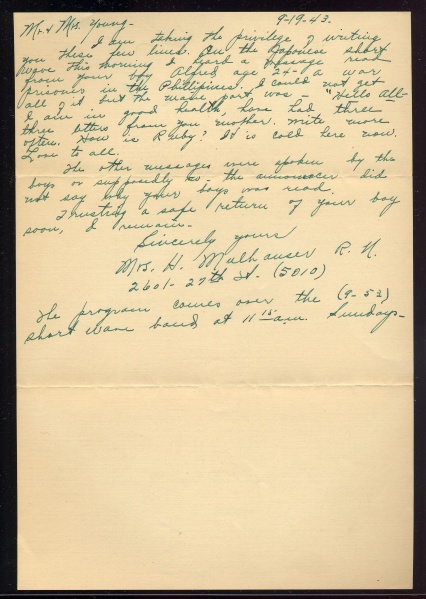 9-19-43.
Mr. & Mrs. Young-
I am taking the privilege of writing
you these few lines. On the Japonese short
wave this morning I heard a message read
from your boy Alfred age 24- a war
prisoner in the Phillipines, I could not get
all of it but the main part was- "Hello All-
I am in good health have had three
three letters from you mother. Write more
often. How is Ruby? It is cold here now.
Love to all.
The other messages were spoken by the
boys or supposedly so- the announcer did
not say why your boys was read.
Trusting a safe return of your boy
soon, I remain-
Sincerely yours
Mrs. H. Mulhauser R. N.
2601- 27th St. (5010)
The program comes over the (9-53)
short wave band at 11 15 a.m. Sundays-